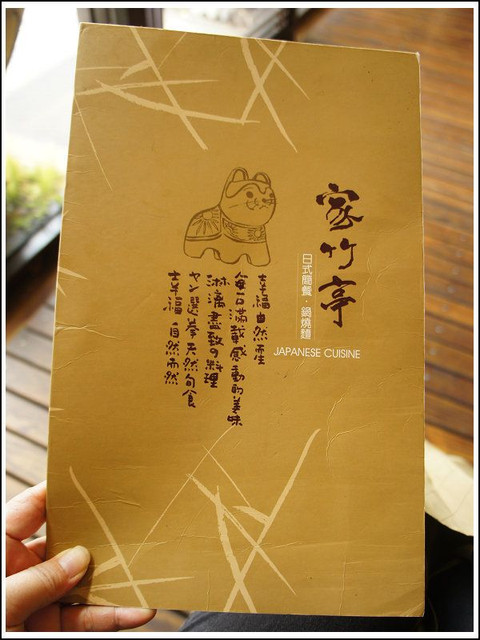 家竹亭
日式簡餐．鍋燒麵
JAPANESE CUISINE
幸福自然產
每口滿載感動的美味
淋漓盡致の料理
ヤン選拳天然旬食
幸福 自然而然